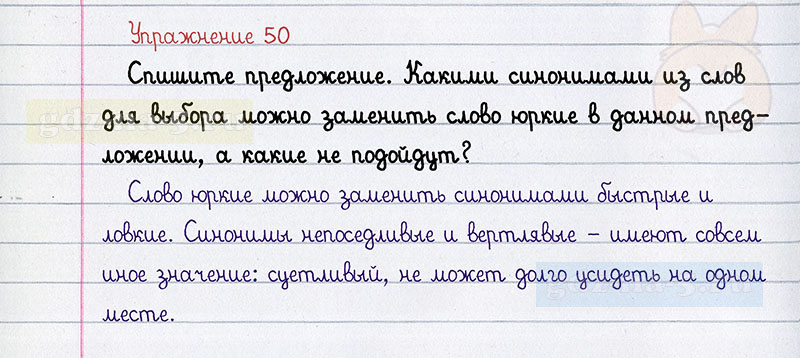 Упражнение 50
Спишите предложение. Какими синонимами из слов
для выбора можно заменить слово юркие в данном пред-
ложении, а какие не подойдут?
Слово юркие можно заменить синонимами быстрые и
ловкие. Синонимы непоседливые и вертлявые – имеют совсем
иное значение: суетливый, не может долго усидеть на одном
месте.